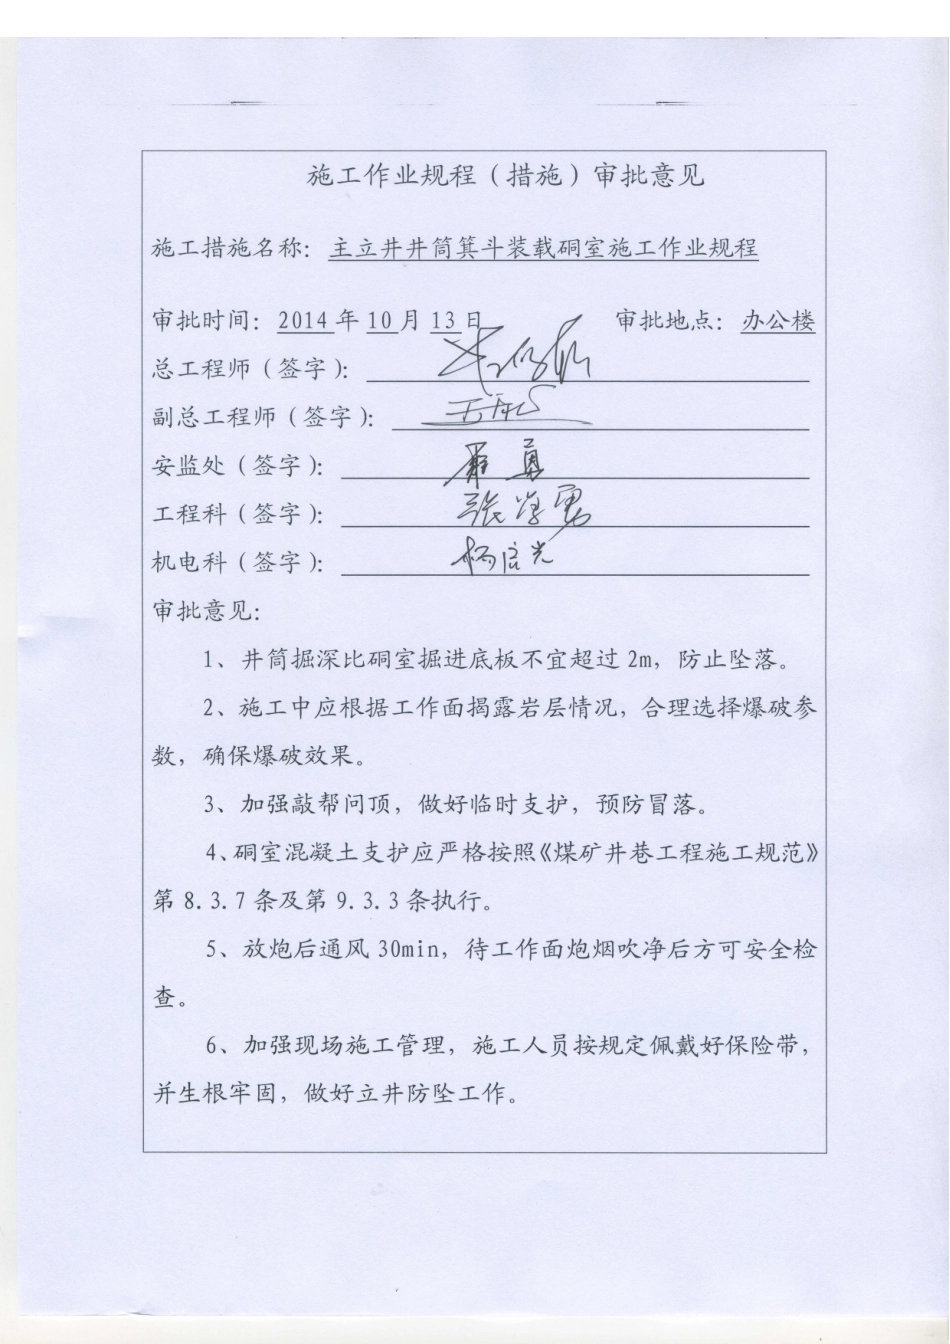 施工作业规程（措施）审批意见
施工措施名称：主立井井筒箕斗装载硐室施工作业规程
审批时间：2014年10月13日 审批地点：办公楼
总工程师（签字）：
副总工程师（签字）：
安监处（签字）：
工程科（签字）：张学勇
机电科（签字）：杨信光
审批意见：
1、井筒掘深比硐室掘进底板不宜超过2m，防止坠落。
2、施工中应根据工作面揭露岩层情况，合理选择爆破参
数，确保爆破效果。
3、加强敲帮问顶，做好临时支护，预防冒落。
4、硐室混凝土支护应严格按照《煤矿井巷工程施工规范》
第8.3.7条及第9.3.3条执行。
5、放炮后通风30min，待工作面炮烟吹净后方可安全检
查。
6、加强现场施工管理，施工人员按规定佩戴好保险带，
并生根牢固，做好立井防坠工作。